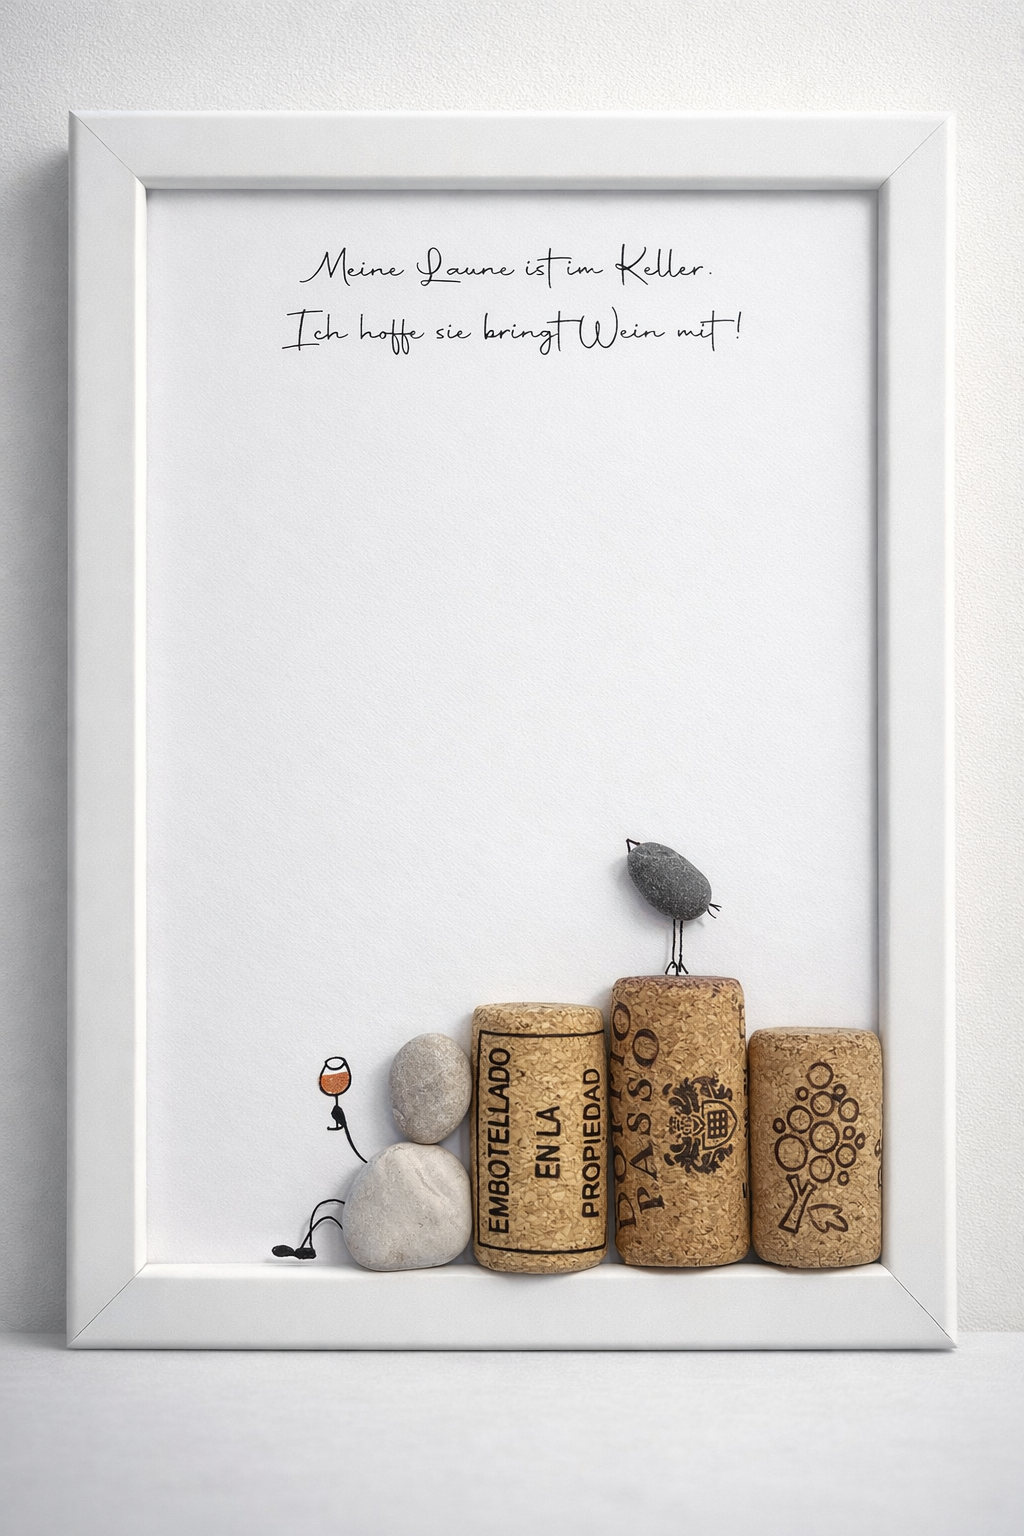 Meine Laune ist im Keller.
Ich hoffe sie bringt Wein mit!
EMBOTELLADO
EN LA
PROPIEDAD
PASSO